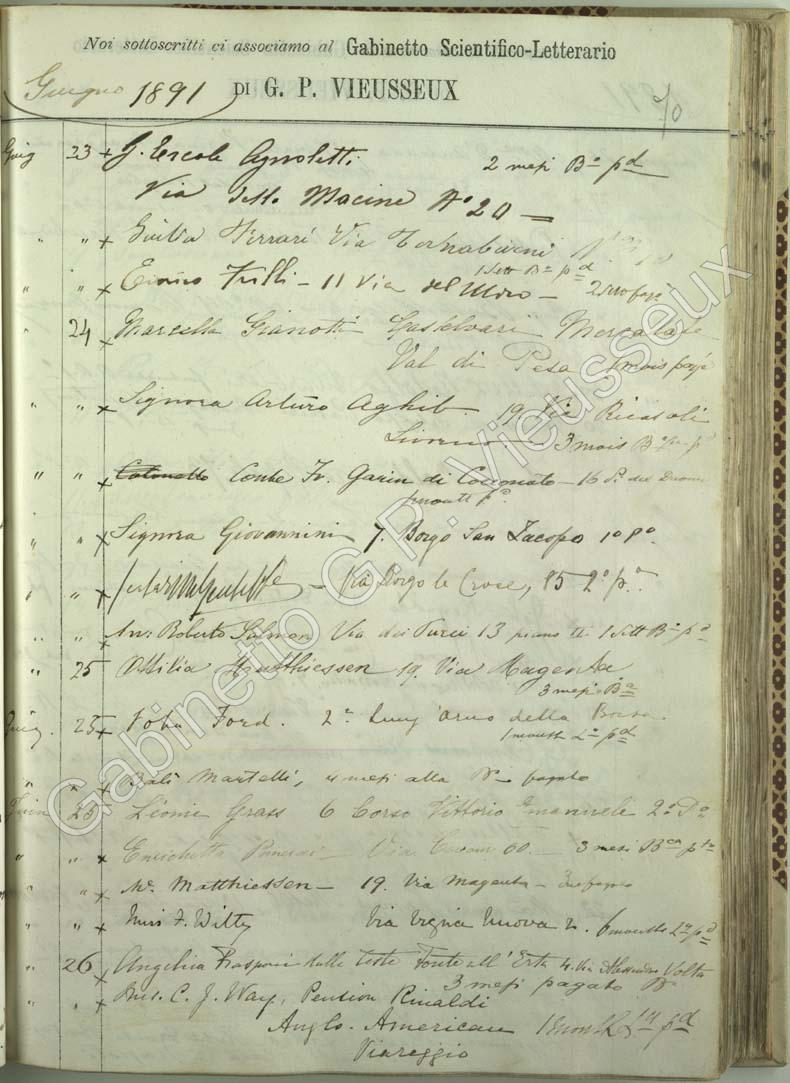 Noi sottoscritti ci associamo al Gabinetto Scientifico-Letterario
Giugno 1891 DI G. P. VIEUSSEUX
Giug 23 + G. Ercole Agnoletti 2 mesi Ba pd
Via delle Macine No 20
" " + Giulia Ferrari Via Tornabuoni
1 Sett Ba pd
" " + Enrico Trilli - 11 Via del Moro -
" 24 + Marcella Gianotti Mercatale
Val di Pesa 1 mois payé
" " + Signora Arturo Aghib 19 Via Ricasoli
Livorno 3 mois
" " + Colonnello Conte Fr. Garin di Cocconato - 16 P. del Duomo
1 month pd.
" " + Signora Giovannini 7. Borgo San Jacopo 1o po.
" " + - Via Borgo la Croce, 85 2o po.
" " + Roberto Salmon Via dei Pucci 13 piano 1 Sett Ba pa
" 25 Ottilia Matthiessen 19. Via Magenta
3 mesi Ba
Giug. 25 + John Ford. 2a Lung'Arno della Borsa.
1 month 2a pd
" " + Balì Martelli, 4 mesi alla Ba pagato
Juin 25 Léonie Grass 6 Corso Vittorio Emanuele 2o Do
" " + Enrichetta Via Cavour 60. - 3 mesi
" " + Mr. Matthiessen - 19. Via Magenta -
" " + Miss F. Witty Via Vigna Nuova 2. 6 months 2a pd
" 26 + Angelica Rasponi dalle Teste Fonte all'Erta 4. Via Alessandro Volta
3 mesi pagato Ba
" " + Mrs. C. J. Way, Pension Rinaldi
Anglo-American 1 month pd
Viareggio
Gabinetto G.P. Vieusseux